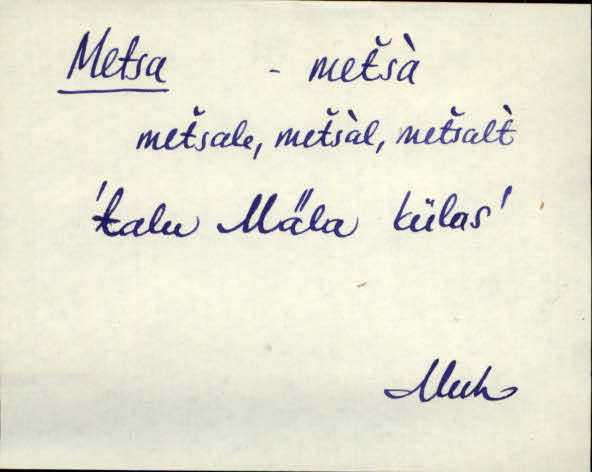 Metsa - metšà
metšale, metšàl, metšalt̀
'talu Mäla külas'
Muh